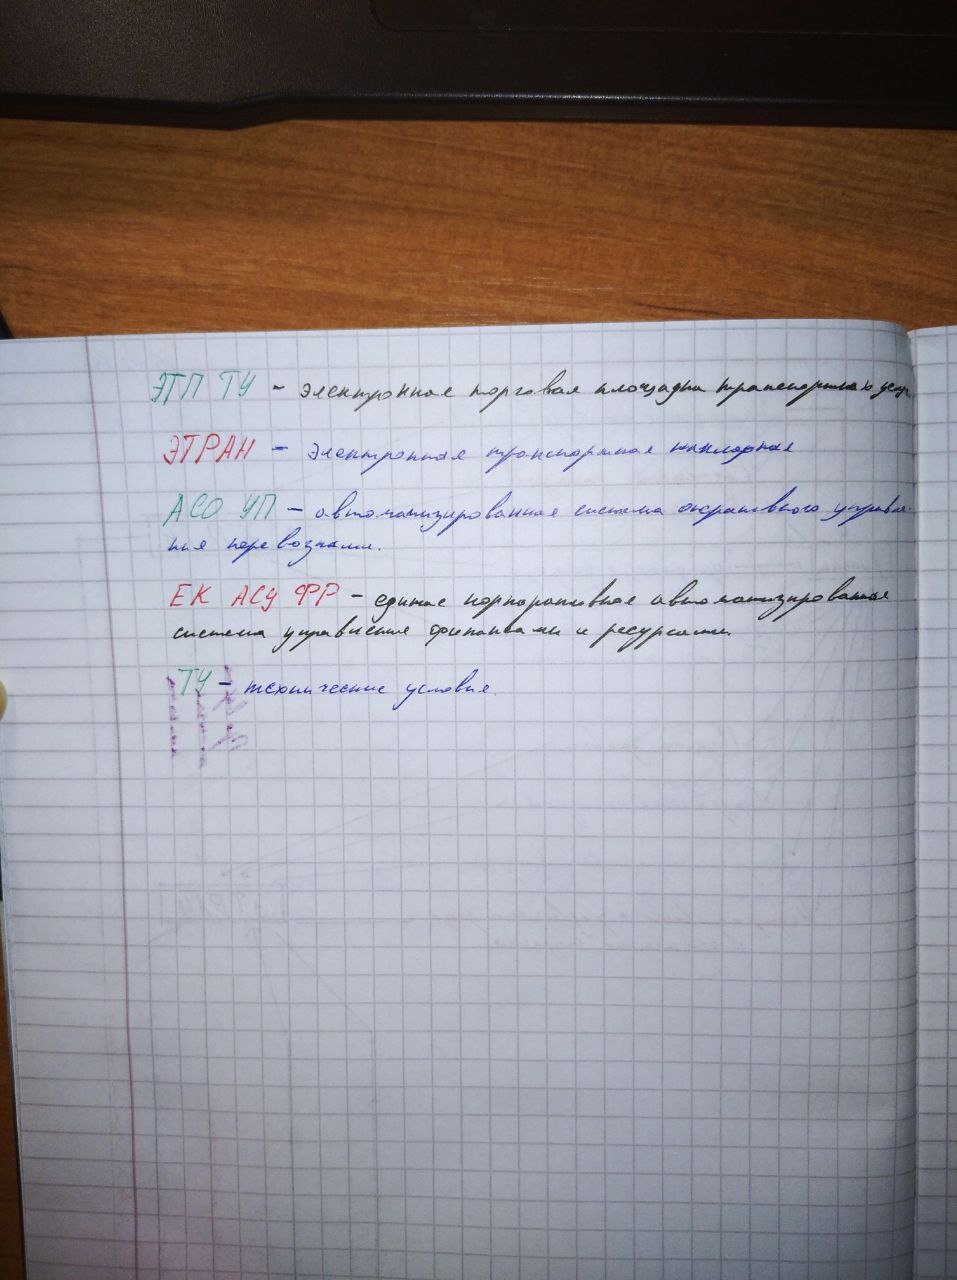 ЭТП ТУ - электронная торговая площадка транспортных услуг
ЭТРАН - электронная транспортная накладная
АСО УП - автоматизированная система оперативного управле-
ния перевозками.
ЕК АСУ ФР - единая корпоративная автоматизированная
система управления финансами и ресурсами.
ТУ - технические условия.